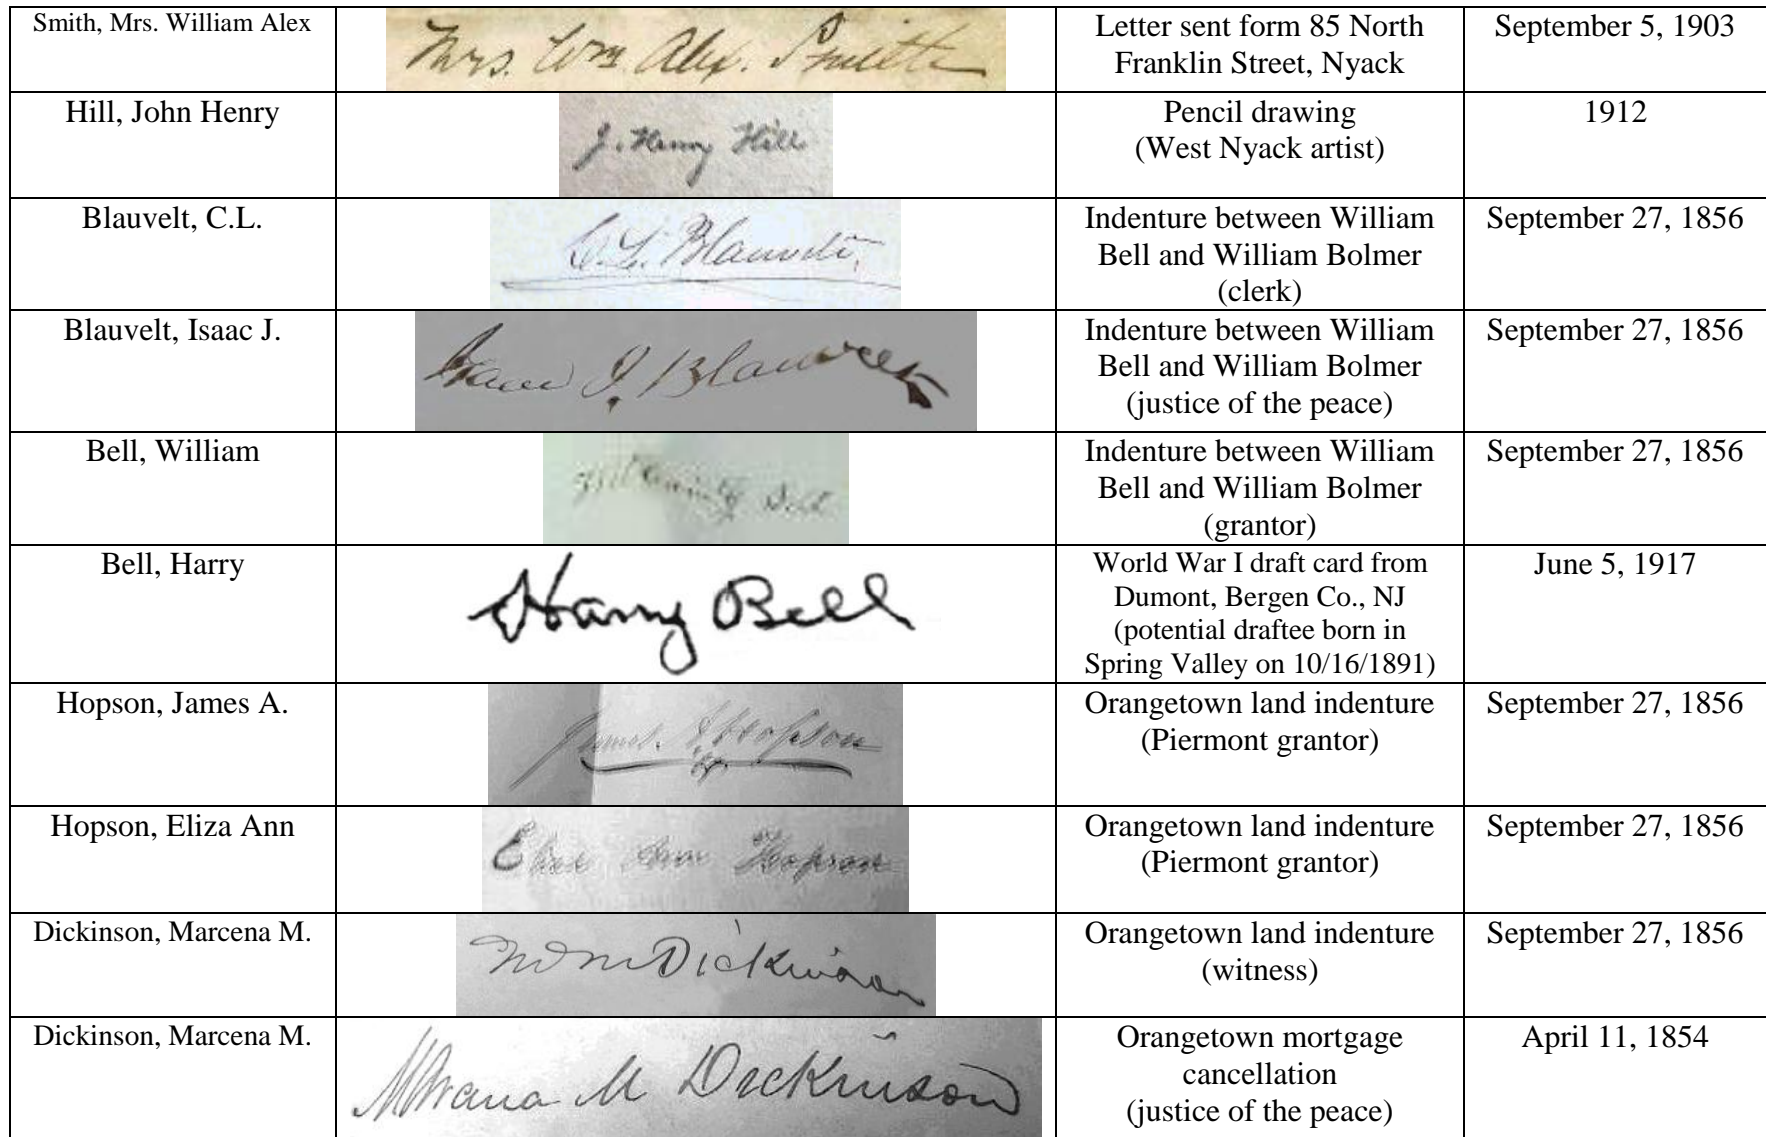 Smith, Mrs. William Alex
Mrs. Wm. Alex. Smith
Letter sent form 85 North
Franklin Street, Nyack
September 5, 1903
Hill, John Henry
J. Henry Hill
Pencil drawing
(West Nyack artist)
1912
Blauvelt, C.L.
C. L. Blauvelt
Indenture between William
Bell and William Bolmer
(clerk)
September 27, 1856
Blauvelt, Isaac J.
Isaac J. Blauvelt
Indenture between William
Bell and William Bolmer
(justice of the peace)
September 27, 1856
Bell, William
Bell
Indenture between William
Bell and William Bolmer
(grantor)
September 27, 1856
Bell, Harry
Harry Bell
World War I draft card from
Dumont, Bergen Co., NJ
(potential draftee born in
Spring Valley on 10/16/1891)
June 5, 1917
Hopson, James A.
James A. Hopson
Orangetown land indenture
(Piermont grantor)
September 27, 1856
Hopson, Eliza Ann
Eliza Ann Hopson
Orangetown land indenture
(Piermont grantor)
September 27, 1856
Dickinson, Marcena M.
M M Dickinson
Orangetown land indenture
(witness)
September 27, 1856
Dickinson, Marcena M.
M Dickinson
Orangetown mortgage
cancellation
(justice of the peace)
April 11, 1854